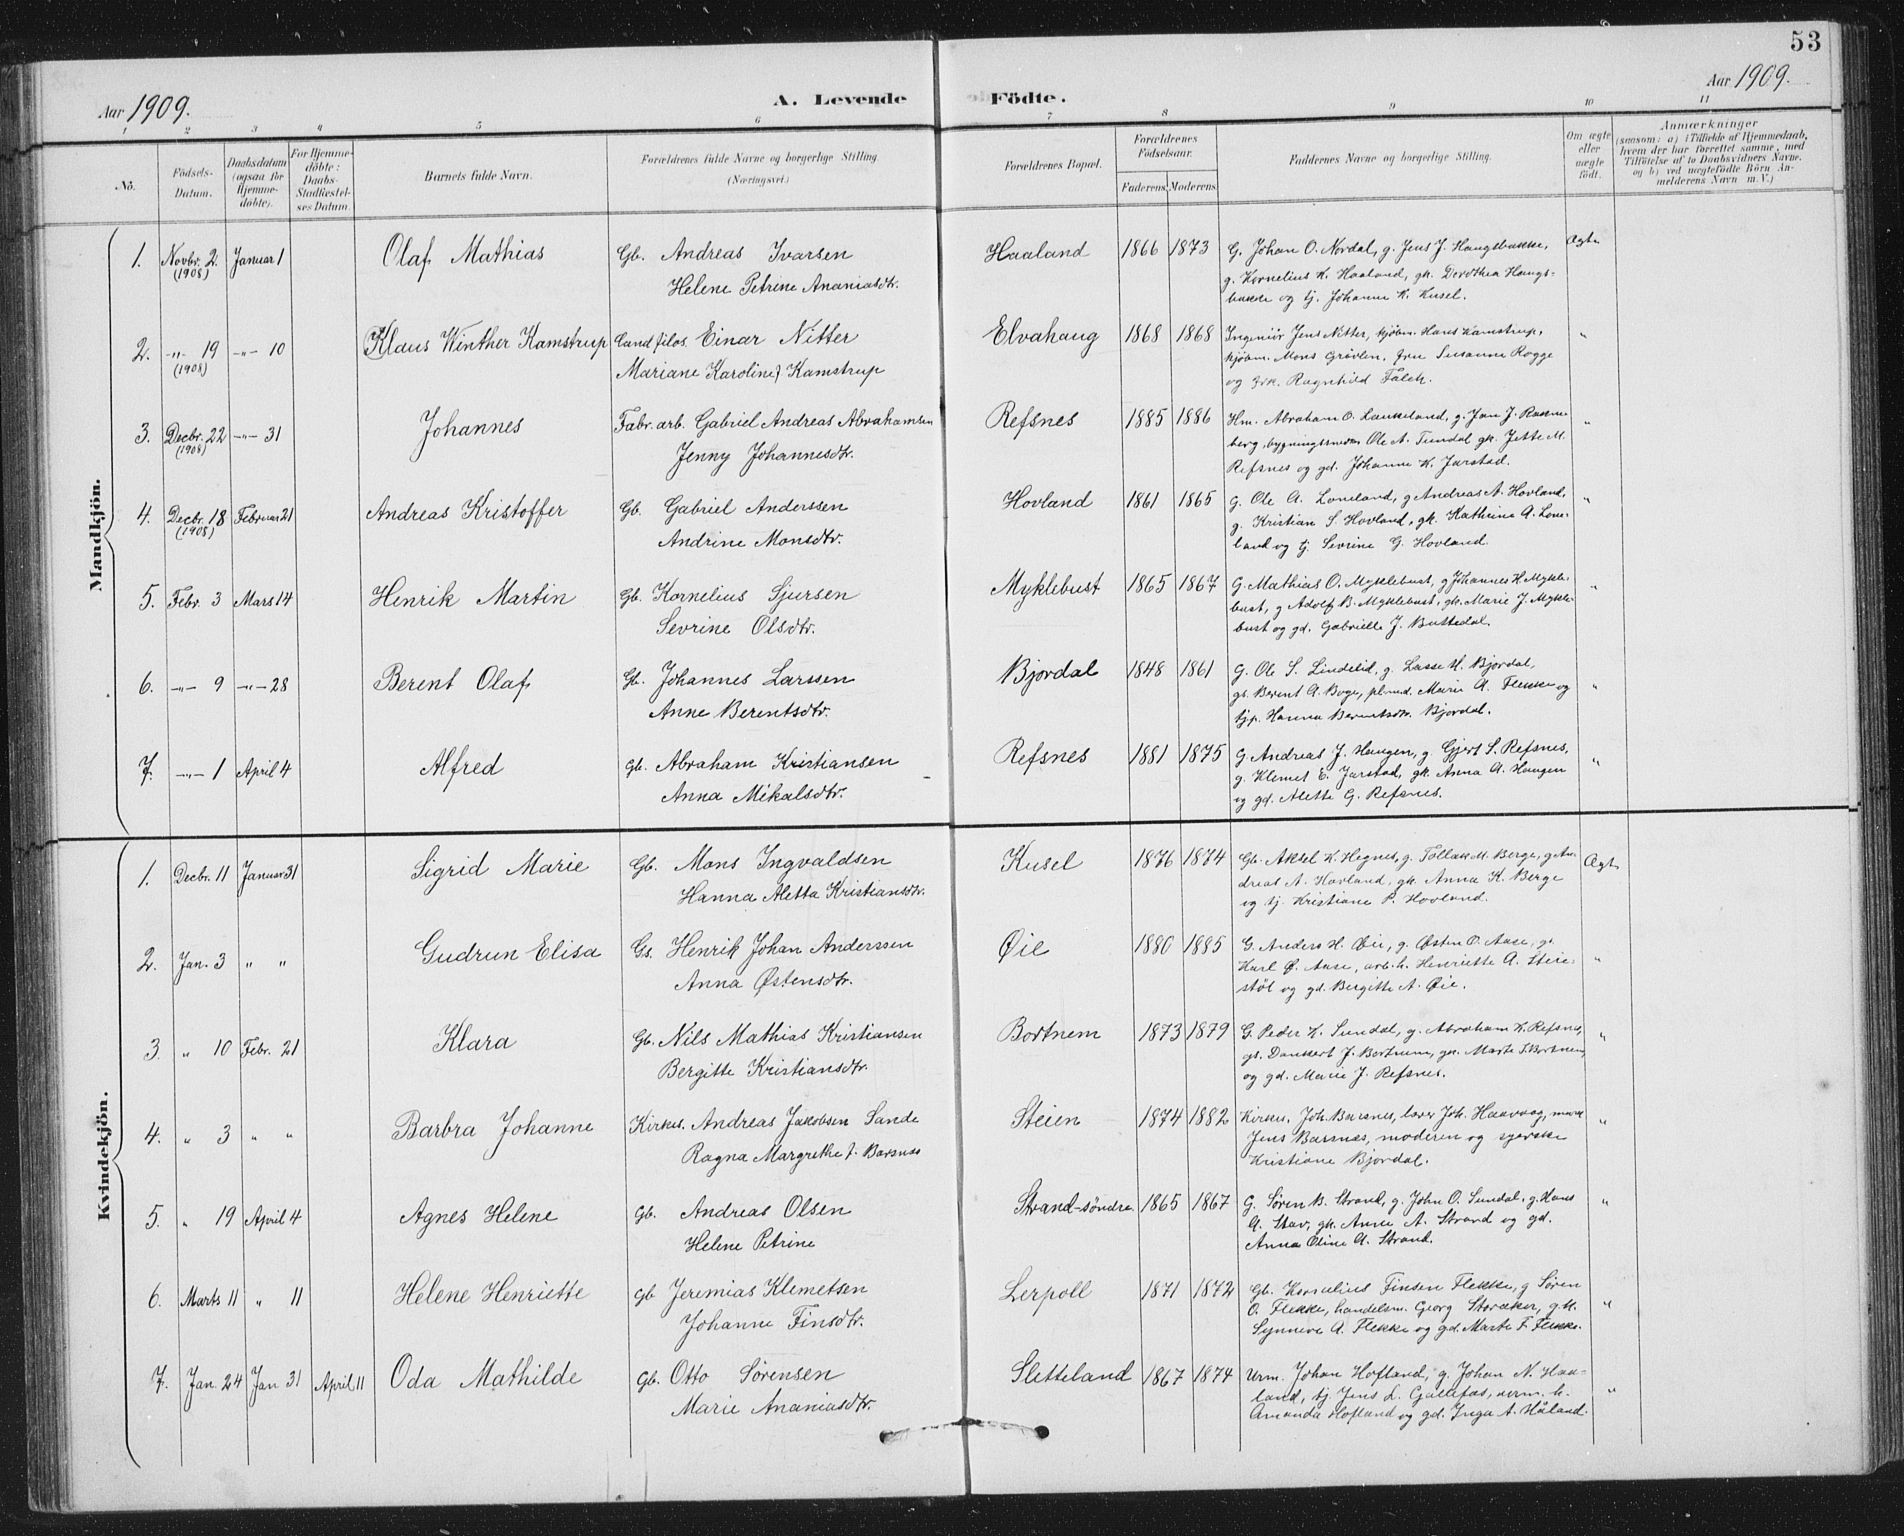 53
Aar 1909.
A. Levende Födte.
Aar 1909.
1 2 3 4 5 6 7 8 9 10 11
No.
Födsels-
Datum.
Daabsdatum
(ogsaa for
Hjemme-
döbte).
For Hjemme-
döbte:
Daabs-
Stadfæstel-
ses Datum.
Barnets fulde Navn.
Forældrenes fulde Navne og borgerlige Stilling.
(Næringsvei.)
Forældrenes Bopæl.
Forældrenes
Födselsaar.
Faderens. Moderens.
Faddernes Navne og borgerlige Stilling.
Om ægte
eller
uægte
født.
Anmærkninger
(saasom: a) i Tilfælde af Hjemmedaab,
hvem der har forrettet samme, med
Tilföielse af to Daabsvidners Navne.
og b) ved uægtefödte Börn An-
melderens Navn m. V.)
Mandkjön.
1. Novbr. 2. (1908) Januar 1 Olaf Mathias Gb. Andreas Ivarsen
Helene Petrine Ananiasdtr.
Haaland 1866 1873 G. Johan O. Nordal, g. Jens J. Haugsbakke,
g. Kornelius K. Haaland, gk. Dorothea Haugs-
bakke og tj. Johanne K. Kusel.
Ægte
2. -"- 19 (1908) -"- 10 Klaus Winther Kamstrup Cand filos. Einar Nitter
Mariane Karoline f. Kamstrup
Elvahaug 1868 1868 Ingeniör Jens Nitter, kjöbm. Hans Kamstrup,
kjöbm. Mons Grövlen, fru Susanne Rogge
og frk. Ragnhild Falch.
"
3. Decbr. 22 (1908) -"- 31 Johannes Fabr. arb. Gabriel Andreas Abrahamsen
Jenny Johannesdtr.
Refsnes 1885 1886 Hm. Abraham O. Laukeland, g. Jan J.
berg, Ole A. Sundal gk. Jette M.
Refsnes og gd. Johanne K. Jarstad.
"
4. Decbr. 18 (1908) Februar 21 Andreas Kristoffer Gb. Gabriel Anderssen
Andrine Monsdtr.
Hovland 1861 1865 G. Ole A. Loneland, g Andreas A. Hovland,
g. Kristian S. Hovland, gk. Kathrine A. Lone-
land og tj. Sevrine G. Hovland.
"
5. Febr. 3 Mars 14 Henrik Martin Gb. Kornelius Sjursen
Sevrine Olsdtr.
Myklebust 1865 1867 G. Mathias O. Myklebust, g Johannes H. Mykle-
bust, g Adolf B. Myklebust, gk. Marie J. Mykle-
bust og gd. Gabrielle J. Buttedal.
"
6. -"- 9 -"- 28 Berent Olaf Gb. Johannes Larssen
Anne Berentsdtr.
Bjordal 1848 1861 G. Ole S. Lindelid, g. Lasse H. Bjordal,
gs. Berent A. Boge, Marie A. Flekke og
tjp. Hanna Berentsdtr. Bjordal.
"
7. -"- 1 April 4 Alfred Gb. Abraham Kristiansen
Anna Mikalsdtr.
Refsnes 1881 1875 G. Andreas J. Haugen, g. Gjert S. Refsnes,
g. Klemet E. Jarstad, gk. Anna A. Haugen
og gd. Alette G. Refsnes.
"
Kvindekjön.
1. Decbr. 11 Januar 31 Sigrid Marie Gb. Mons Ingvaldsen
Hanna Aletta Kristiansdtr.
Kusel 1876 1874 Gb. Aksel K. Hegnes, g. Tollak M. Berge, g. An-
dreas A. Hovland, gk. Anna K. Berge
og tj. Kristiane P. Hovland.
Ægte
2. Jan. 3 " " Gudrun Elisa Gs. Henrik Johan Anderssen
Anna Østensdtr.
Øie 1880 1885 G. Anders H. Øie, g. Østen O. Aase, gs.
Karl Ø. Aase, arb. h. Henriette A. Steie-
støl og gd. Bergitte A. Øie.
"
3. " 10 Febr. 21 Klara Gb. Nils Mathias Kristiansen
Bergitte Kristiansdtr.
Bortnem 1873 1879 G. Peder K. Sundal, g. Abraham K. Refsnes,
gs. Dankert J. Bortnem, gk. Marte S. Bortnem
og gd. Marie J. Refsnes.
"
4. " 3 " " Barbra Johanne Kirkes. Andreas Jakobsen Sande
Ragna Margrethe f. Barsnes
Steien 1874 1882 Kirkes. Joh. Barsnes, lærer Joh. Haavaag,
Jens Barsnes, moderen og syerske
Kristiane Bjordal.
"
5. " 19 April 4 Agnes Helene Gb. Andreas Olsen
Helene Petrine
Strand-søndre 1865 1867 G. Søren B. Strand, g. John O. Sundal, g. Hans
A. Stav, gk. Anne A. Strand og gd.
Anna Oline A. Strand.
"
6. Marts 11 " 11 Helene Henriette Gb Jeremias Klemetsen
Johanne Finsdtr.
Lerpoll 1871 1872 Gb. Kornelius Finsen Flekke, g Søren
O. Flekke, handelsm. Georg Storaker, gk.
Synneve A. Flekke og gd. Marte F. Flekke.
"
7. Jan. 24 Jan 31 April 11 Oda Mathilde Gb. Otto Sørensen
Marie Ananiasdtr.
Sletteland 1867 1874 Urm. Johan Hofland, g. Johan N. Haa-
land, tj Jens L. Gallefos, urm. h.
Amanda Hofland og gd. Inga A. Håland.
"